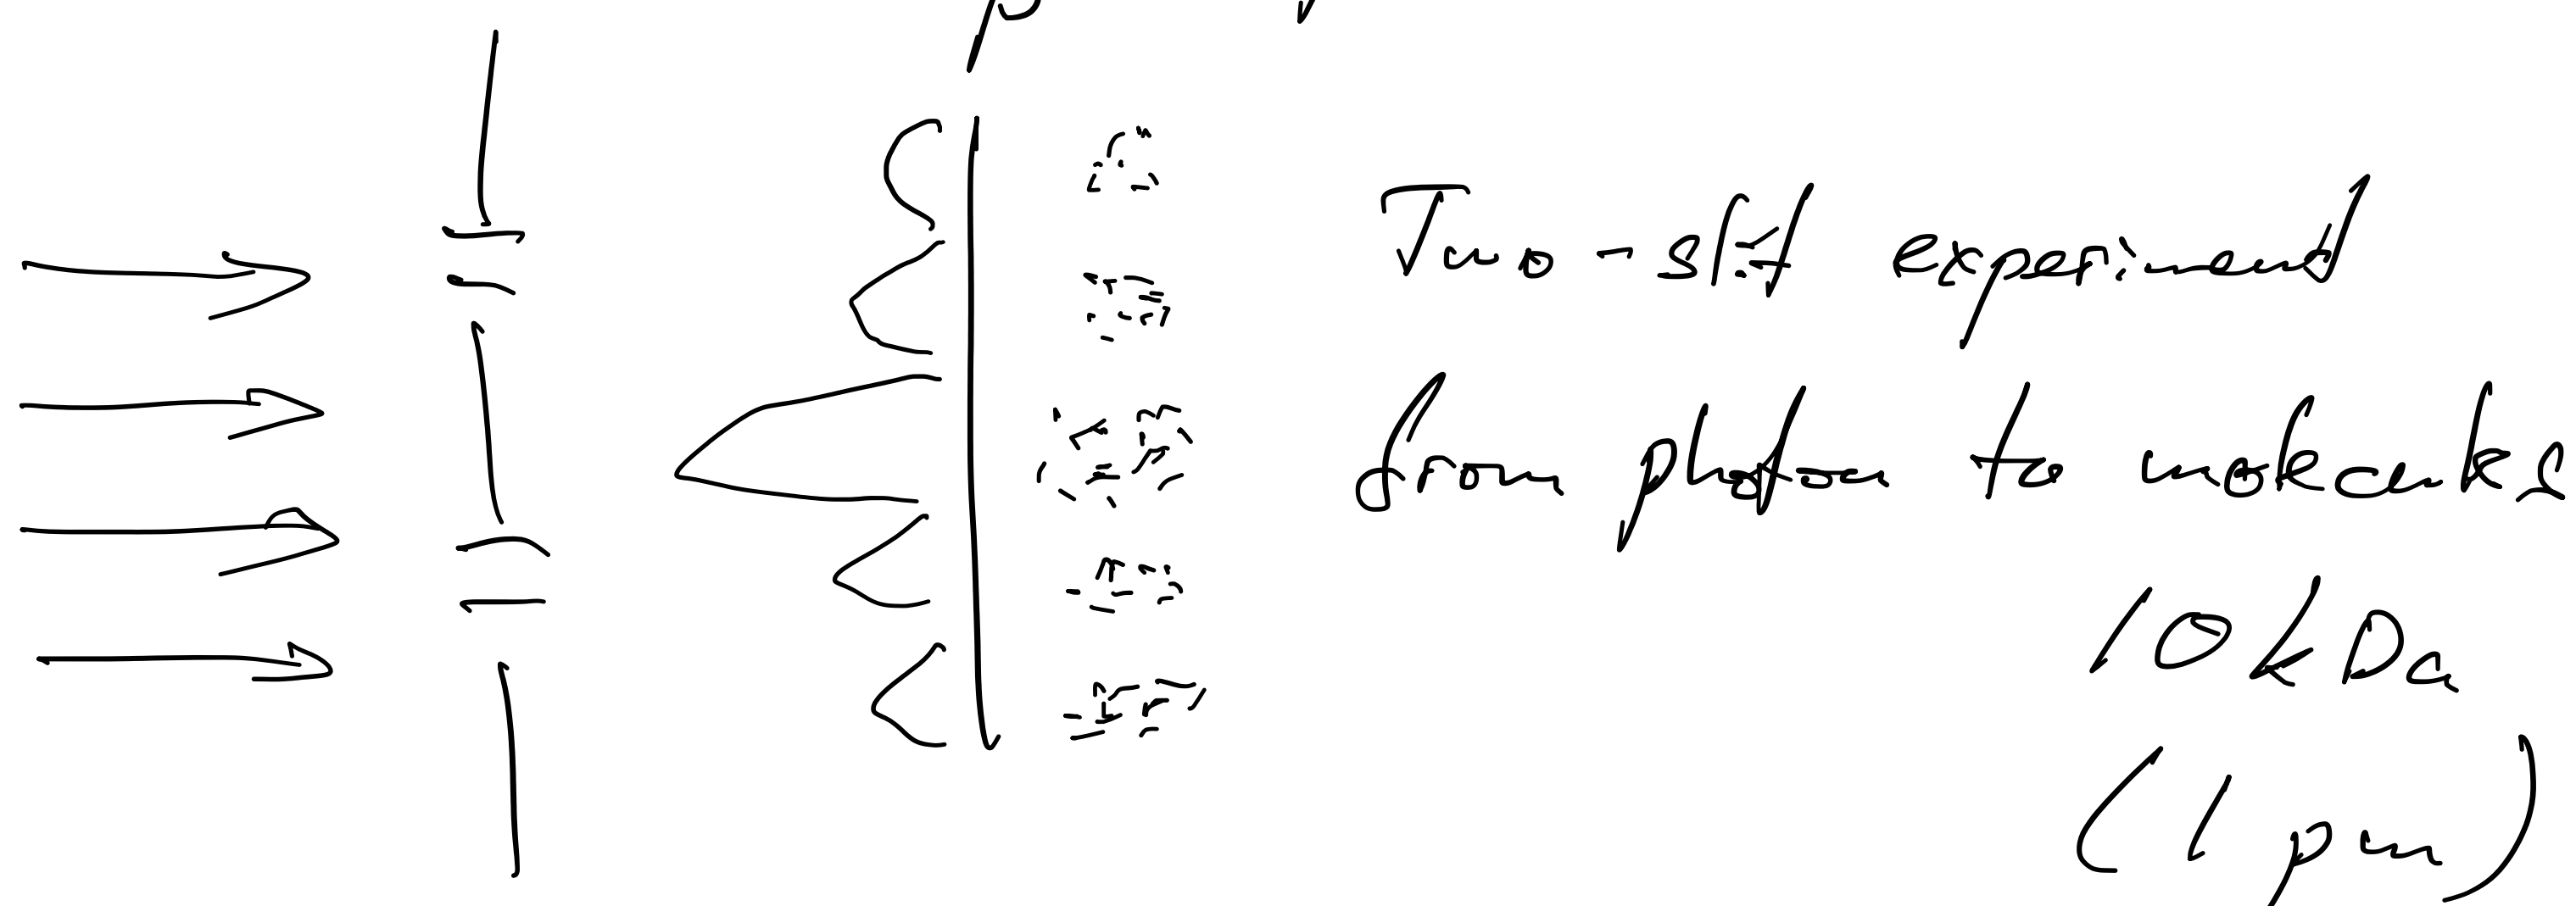 Two-slit experiment
from photon to molecules
10 kDa
(1 pm)